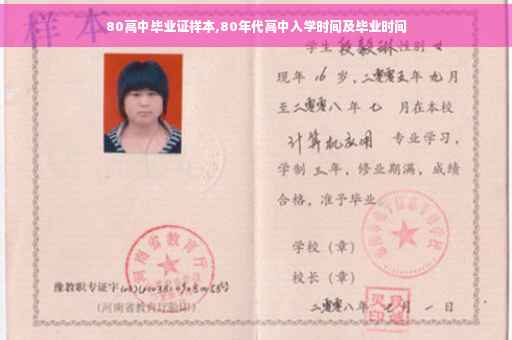 80高中毕业证样本,80年代高中入学时间及毕业时间
样本
学生 段毅琳 性别 女
现年 16 岁，二零零五年 九月
至二零零八年 七 月在本校
计算机应用 专业学习，
学制 三年，修业期满，成绩
合格，准予毕业。
学校（章）
校长（章）
二零零八年 月 一 日
河南省教育厅
豫教职专证字
（河南省教育厅验印）